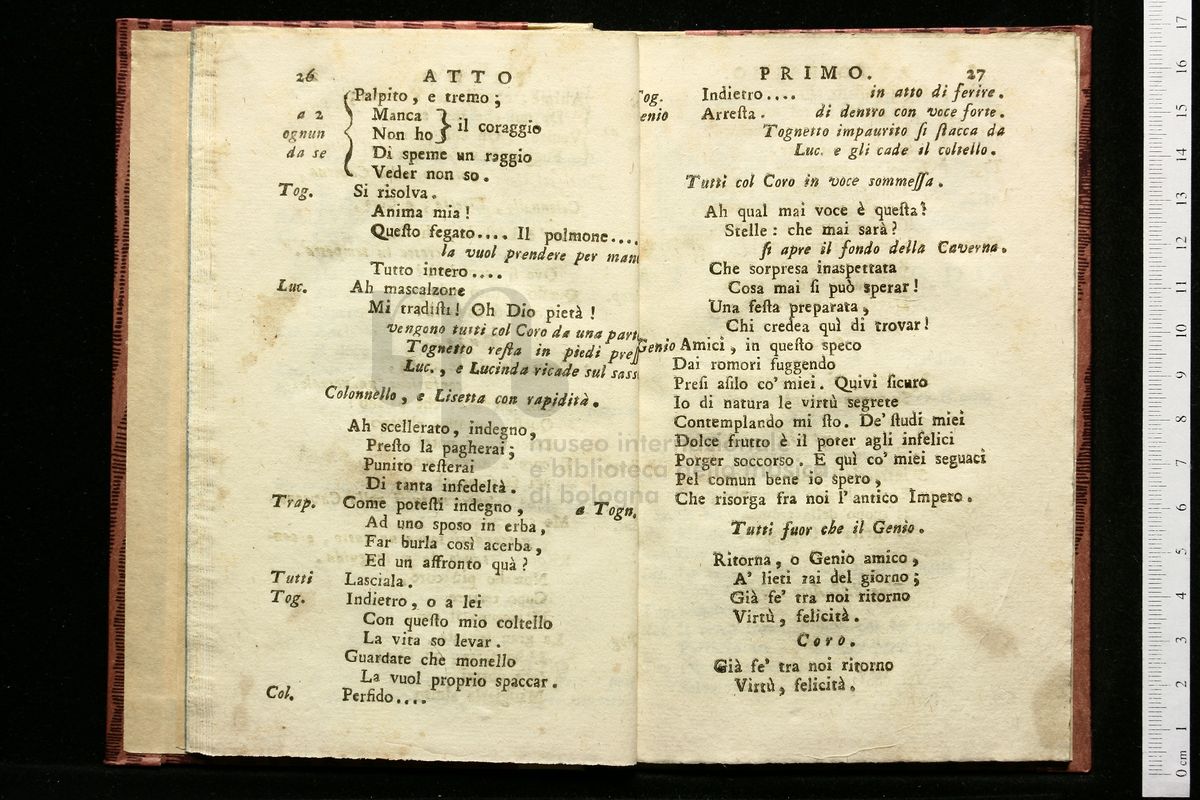 26 ATTO
Palpito, e tremo;
a 2 Manca
ognun Non ho } il coraggio
da se Di speme un raggio
Veder non so.
Tog. Si risolva.
Anima mia!
Queſto fegato.... Il polmone....
la vuol prendere per man
Tutto intero....
Luc. Ah mascalzone
Mi tradiſti! Oh Dio pietà!
vengono tutti col Coro da una part
Tognetto reſta in piedi preſſ
Luc., e Lucinda ricade sul sass
Colonnello, e Lisetta con rapidità.
Ah scellerato, indegno,
Preſto la pagherai;
Punito reſterai
Di tanta infedeltà.
Trap. Come poteſti indegno, a Togn.
Ad uno sposo in erba,
Far burla così acerba,
Ed un affronto quà?
Tutti Lasciala.
Tog. Indietro, o a lei
Con queſto mio coltello
La vita so levar.
Guardate che monello
La vuol proprio spaccar.
Col. Perfido....
PRIMO. 27
Tog. Indietro.... in atto di ferire.
enio Arreſta. di dentro con voce forte.
Tognetto impaurito ſi ſtacca da
Luc. e gli cade il coltello.
Tutti col Coro in voce sommeſſa.
Ah qual mai voce è queſta?
Stelle: che mai sarà?
ſi apre il fondo della Caverna.
Che sorpresa inaspettata
Cosa mai ſi può sperar!
Una feſta preparata,
Chi credea quì di trovar!
Genio Amici, in queſto speco
Dai romori fuggendo
Preſi aſilo co' miei. Quivi ſicuro
Io di natura le virtù segrete
Contemplando mi ſto. De' ſtudi miei
Dolce frutto è il poter agli infelici
Porger soccorso. E quì co' miei seguaci
Pel comun bene io spero,
Che risorga fra noi l' antico Impero.
Tutti fuor che il Genio.
Ritorna, o Genio amico,
A' lieti rai del giorno;
Già fe' tra noi ritorno
Virtù, felicità.
Coro.
Già fe' tra noi ritorno
Virtù, felicità.
museo internazionale
e biblioteca della musica
di bologna
0 cm 1 2 3 4 5 6 7 8 9 10 11 12 13 14 15 16 17